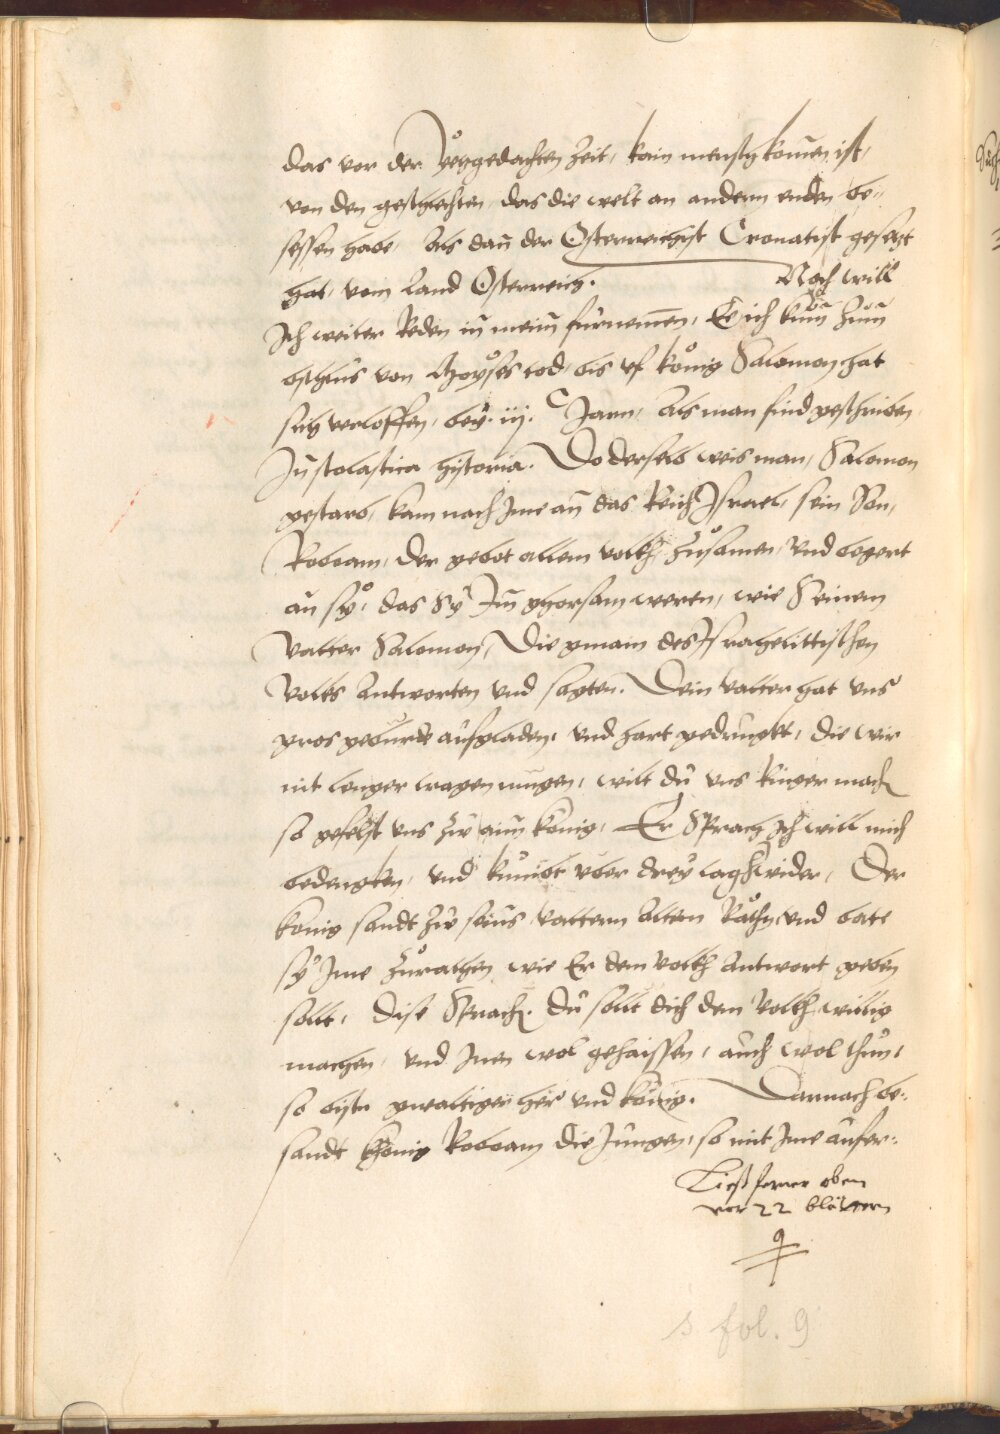 das vor der yetzgedachten Zeit, kain mensch komen ist,
von den geschlechten, das die welt an andern enden be„
sessen habe, Als dan der Osterreichist Cronatist gesetzt
hat, vom Land Osterreich. Noch will
Ich weiter Reden in meim fürnemen, Ee ich kum zum
bschlus von Moyses tod, bis uf könig Salomon hat
sich verloffen, bey. iij. C Jarn, Als man find geschriben
In scolastica historia. Do derselb weis man, Salomon
gestarb, kam nach Jme an das Reich Jsrael, sein Son,
Roboam, der gebot allem volkh, Zusamen, und begert
an sy, das Sy Jm ghorsam weren, wie Seinem
Vatter Salomon, Die gmain des Jsrahelittischen
Volks Antworten und sagten. Dein vatter hat uns
gros geburde aufgladen, und hart gedrungkt, die wir
nit lenger tragen mugen, wilt du uns ringer mach
so gefelst uns zu aim könig, Er Sprach Jch will mich
bedengken, und kumbt uber drey tag hwider, Der
konig sandt zu seins vattern Alten Räthn und bate
sy Jme zurathen wie Er dem volkh Antwort geben
sollt, dise Sprach. du sollt dich dem volkh willig
machen, und Jnen wol gehaissen, auch wol thun,
so bistu gwaltiger her und könig. Darnach be„
sandt König Roboam die Jungen, so mit Jme aufer„
Liesz ferner oben
vor 22 blättern
9
s fol. 9